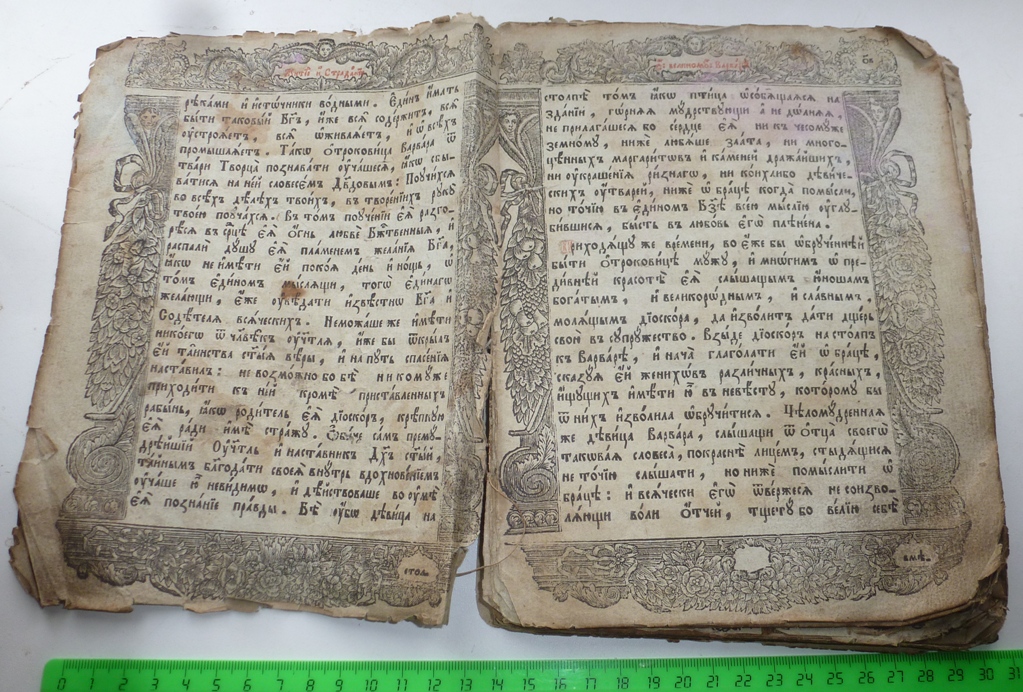 Житїе и҆ Страда́нїе
рѣками и҆ и҆сто́чники во́дными. Е҆ди́нъ и҆мать
бы́ти таковы́й Бг҃ъ, и҆́же всѧ̑ содержи́тъ, всѧ̑
оу҆строѧ́етъ, всѧ̑ ѡ҆живлѧ́етъ, и҆ ѡ҆ всѣ́хъ
промышлѧ́етъ. Та́кѡ ѻ҆трокови́ца Варва́ра ѿ
тва́ри Творца̀ познава́ти оу҆ча́шесѧ, ꙗ҆́кѡ сбы-
ва́тисѧ на не́й словесє́мъ Дв҃довымъ: Поꙋчи́хсѧ
во всѣ́хъ дѣ́лѣхъ твои́хъ, въ творе́нїихъ рꙋкꙋ̀
твоє́ю поꙋча́хсѧ. Въ то́мъ поꙋче́нїи є҆ѧ̀ разго-
рѣ́сѧ въ ср҃цѣ є҆ѧ̀ ѻ҆́гнь любвѐ Бж҃твенныѧ, и҆
распалѝ дꙋ́шꙋ є҆ѧ̀ пла́менемъ жела́нїѧ Бг҃а,
ꙗ҆́кѡ не и҆мѣ́ти є҆́й поко́ѧ де́нь и҆ но́щь, ѡ҆
то́мъ є҆ди́номъ мы́слѧщи, того̀ є҆ди́нагѡ
жела́ющи, є҆́же оу҆вѣ́дати и҆звѣ́стнѡ Бг҃а и҆
Содѣ́телѧ всѧ́ческихъ. Немо́жаше же и҆мѣ́ти
нико́егѡ ѿ чл҃вѣ́къ оу҆чт҃лѧ, и҆́же бы ѿкры́лъ
є҆́й та̑инства ст҃ы́ѧ вѣ́ры, и҆ на пꙋ́ть спасе́нїѧ
наста́вилъ: не возмо́жно бо бѣ̀ ни комꙋ́же
приходи́ти къ не́й кромѣ̀ приста́вленныхъ
рабы́нь, ꙗ҆́кѡ роди́тель є҆ѧ̀ дїо́скоръ, крѣ́пкꙋю
є҆ѧ̀ ра́ди и҆мѣ̀ стра́жꙋ. Ѻ҆ба́че са́мъ премꙋ́-
дрѣйшїй Оу҆чт҃ль и҆ наста́вникъ Дх҃ъ ст҃ы́й,
та́йнымъ бл҃года́ти своеѧ̀ внꙋ́трь вдохнове́нїемъ
оу҆ча́ше ю҆̀ неви́димѡ, и҆ дѣ́йствоваше во оу҆мѣ̀
є҆ѧ̀ позна́нїе пра́вды. Бѣ̀ оу҆́бѡ дѣви́ца на
стол-
ст҃ы́ѧ великомч҃нцы Варва́ры
столпѣ̀ то́мъ ꙗ҆́кѡ пти́ца ѡ҆собѧ́щаѧсѧ на
зда́нїи, гѡ́рнѧѧ мꙋ́дрствꙋющи а҆ не дѡ́лнѧѧ,
не прилага́шесѧ бо се́рдце є҆ѧ̀ ни къ чесомꙋ́же
земно́мꙋ, нижѐ любѧ́ше зла́та, ни много-
цѣ́нныхъ маргари́тѡвъ и҆ ка́меней дража́йшихъ,
ни оу҆краше́нїѧ ри́знагѡ, ни кои́хлибо дѣви́че-
скихъ оу҆́тварей, нижѐ ѡ҆ бра́цѣ когда̀ помы́сли,
но то́чїю въ є҆ди́номъ Бз҃ѣ все́ю мы́слїю оу҆глꙋ-
би́вшисѧ, бы́сть въ любо́вь є҆гѡ̀ плѣне́на.
Приходѧ́щꙋ же вре́мени, во є҆́же бы ѡ҆брꙋче́ннѣй
бы́ти ѻ҆трокови́цѣ мꙋ́жꙋ, и҆ мнѡ́гимъ ѡ҆ пре-
ди́внѣй красотѣ̀ є҆ѧ̀ слы́шащымъ ю҆́ношамъ
бога́тымъ, и҆ великорѡ́днымъ, и҆ сла̑внымъ,
молѧ́щымъ дїо́скора, да и҆зво́литъ да́ти дще́рь
свою̀ въ сꙋпрꙋ́жество. Взы́де дїо́скоръ на сто́лпъ
къ Варва́рѣ, и҆ нача̀ глаго́лати є҆́й ѡ҆ бра́цѣ,
ска́зꙋѧ є҆́й женихѡ́въ разли́чныхъ, кра́сныхъ,
и҆́щꙋщихъ и҆мѣ́ти ю҆̀ въ невѣ́стꙋ, кото́ромꙋ бы
ѿ ни́хъ и҆зво́лила ѡ҆брꙋчи́тисѧ. Цѣломꙋ́дреннаѧ
же дѣви́ца Варва́ра, слы́шащи ѿ ѻ҆тца̀ своегѡ̀
такова́ѧ словеса̀, покраснѣ̀ лице́мъ, стыдѧ́щисѧ
не то́чїю слы́шати, но нижѐ помы́слити ѡ҆
бра́цѣ: и҆ всѧ́чески є҆гѡ̀ ѿве́ржесѧ не соизво-
лѧ́ющи во́ли ѻ҆́тчей, тщетꙋ́ бо ве́лїю себѣ̀
вмѣ-
0 1 2 3 4 5 6 7 8 9 10 11 12 13 14 15 16 17 18 19 20 21 22 23 24 25 26 27 28 29 30 31